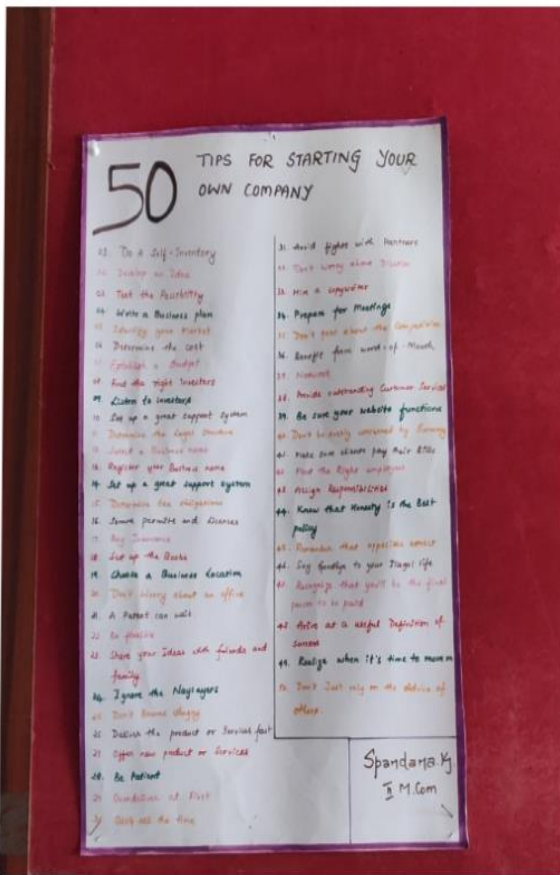 50
TIPS FOR STARTING YOUR
OWN COMPANY
01. Do A Self-Inventory
02. Develop an Idea
03. Test the
04. Write a Business plan
05. Identify your Market
06. Determine the cost
07. Establish a Budget
08. Find the right Investors
09. Listen to Investors
10. Set up a great support System
11. Determine the Legal Structure
12. Select a Business name
13. Register your Business name
14. Set up a great support System
15. Determine tax obligations
16. Secure permits and licenses
17. Buy Insurance
18. Set up the Books
19. Choose a Business Location
20. Don't Worry about an office
21. A Patent can wait
22. Be flexible
23. Share your Ideas with friends and
family
24. Ignore the
25. Don't
26. Deliver the product or Services fast
27. Offer new product or Services
28. Be Patient
29. at First
the time
31. Avoid fights with Partners
32. Don't worry about
33. Hire a Copywriter
34. Prepare for Meetings
35. Don't about the
36. Benefit from word-of-Mouth
37. Network
38. Provide outstanding Customer Services
39. Be sure your website functions
40. Don't be overly concerned by
41. Make sure clients pay their Bills
42. Find the Right employees
43. Assign Responsibilities
44. Know that Honesty is the Best
policy
45. Remember that opposites attract
46. Say Goodbye to your life
47. Recognize that you'll be the final
person to be paid
48. Arrive at a useful Definition of
Success
49. Realize when it's time to move on
50. Don't Just rely on the Advice of
others.
Spandana. Y
II M.Com